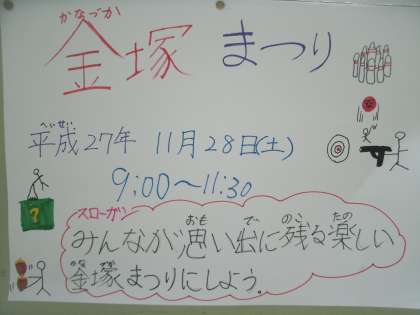 かなづか
金塚 まつり
へいせい
平成27年 11月28日(土)
9:00～11:30
スローガン
おも で のこ たの
みんなが思い出に残る楽しい
かなづか
金塚まつりにしよう。
?